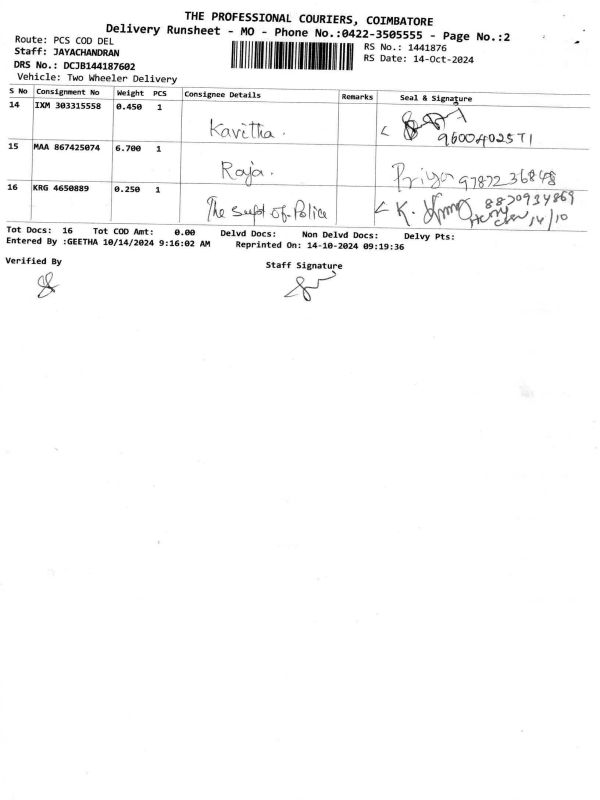 THE PROFESSIONAL COURIERS, COIMBATORE
Delivery Runsheet - MO - Phone No.:0422-3505555 - Page No.:2
Route: PCS COD DEL
RS No.: 1441876
Staff: JAYACHANDRAN
RS Date: 14-Oct-2024
DRS No.: DCJB144187602
Vehicle: Two Wheeler Delivery
S No Consignment No Weight PCS Consignee Details Remarks Seal & Signature
14 IXM 303315558 0.450 1
Kavitha.
15 MAA 867425074 6.700 1
Raja. Priya 9787236848
16 KRG 4650889 0.250 1
The Supt of Police K. 8870934869
14/10
Tot Docs: 16 Tot COD Amt: 0.00 Delvd Docs: Non Delvd Docs: Delvy Pts:
Entered By :GEETHA 10/14/2024 9:16:02 AM Reprinted On: 14-10-2024 09:19:36
Verified By
Staff Signature